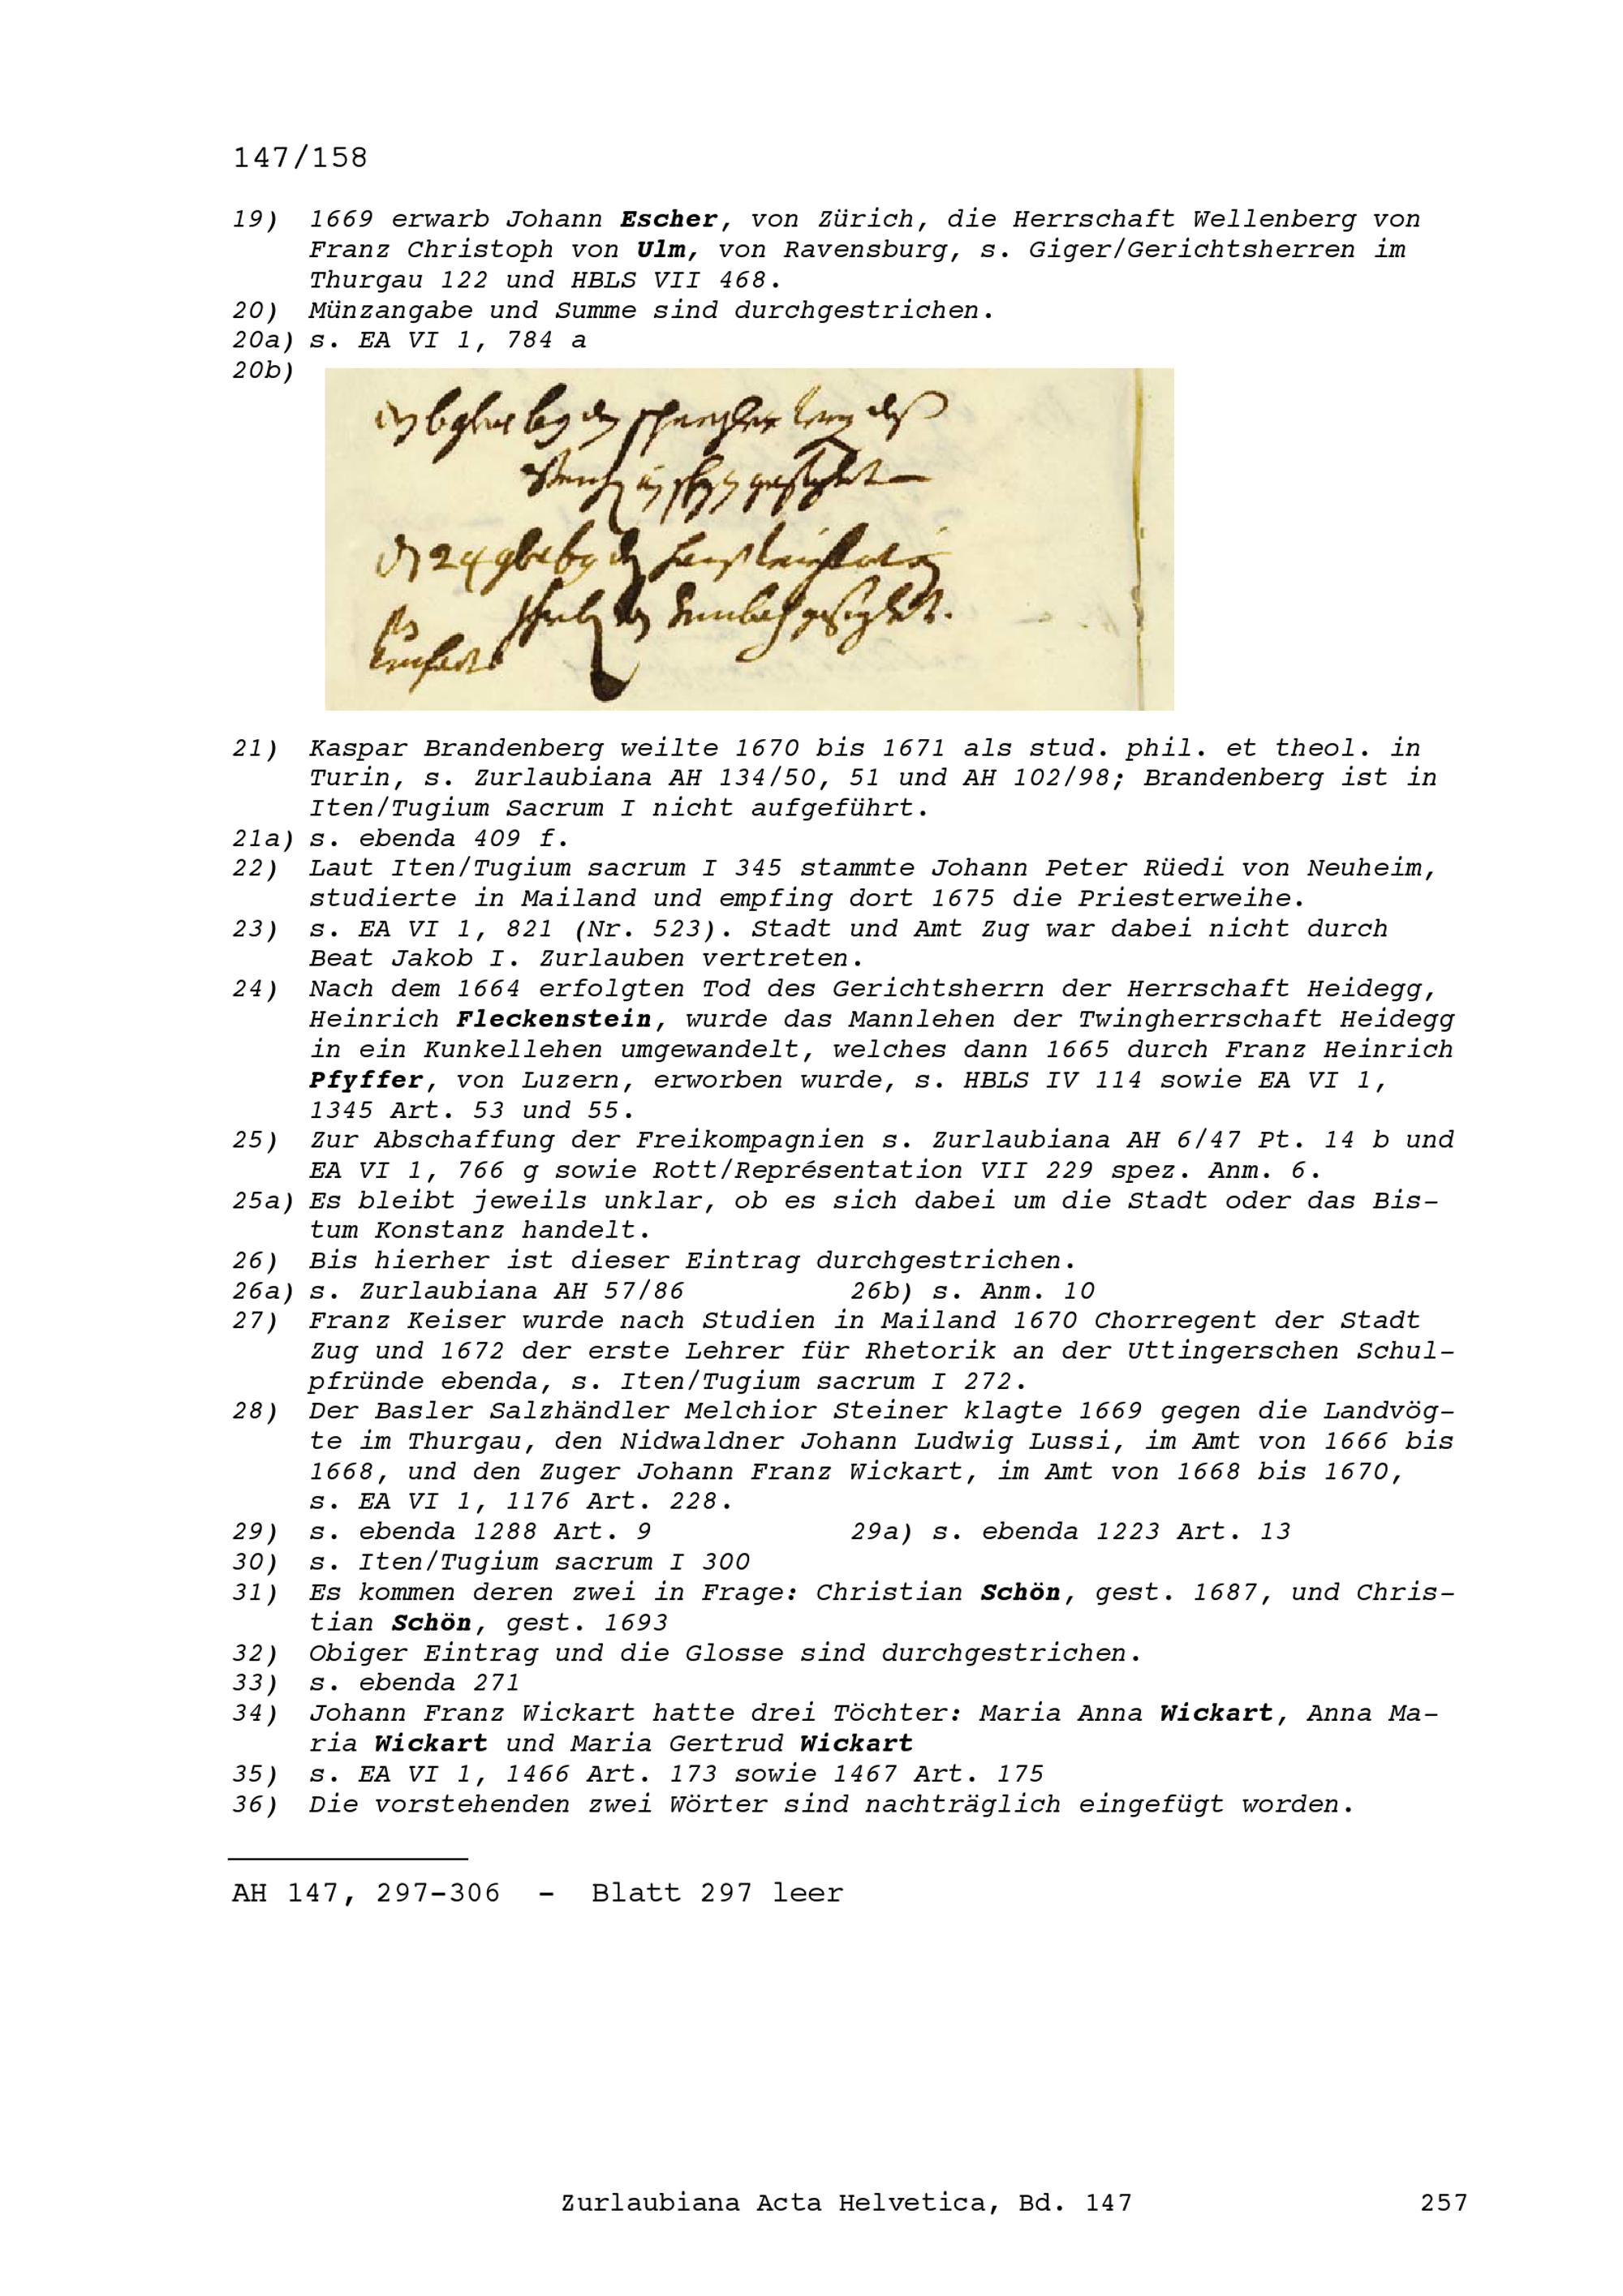 147/158
19) 1669 erwarb Johann Escher, von Zürich, die Herrschaft Wellenberg von
Franz Christoph von Ulm, von Ravensburg, s. Giger/Gerichtsherren im
Thurgau 122 und HBLS VII 468.
20) Münzangabe und Summe sind durchgestrichen.
20a) s. EA VI 1, 784 a
20b)
21) Kaspar Brandenberg weilte 1670 bis 1671 als stud. phil. et theol. in
Turin, s. Zurlaubiana AH 134/50, 51 und AH 102/98; Brandenberg ist in
Iten/Tugium Sacrum I nicht aufgeführt.
21a) s. ebenda 409 f.
22) Laut Iten/Tugium sacrum I 345 stammte Johann Peter Rüedi von Neuheim,
studierte in Mailand und empfing dort 1675 die Priesterweihe.
23) s. EA VI 1, 821 (Nr. 523). Stadt und Amt Zug war dabei nicht durch
Beat Jakob I. Zurlauben vertreten.
24) Nach dem 1664 erfolgten Tod des Gerichtsherrn der Herrschaft Heidegg,
Heinrich Fleckenstein, wurde das Mannlehen der Twingherrschaft Heidegg
in ein Kunkellehen umgewandelt, welches dann 1665 durch Franz Heinrich
Pfyffer, von Luzern, erworben wurde, s. HBLS IV 114 sowie EA VI 1,
1345 Art. 53 und 55.
25) Zur Abschaffung der Freikompagnien s. Zurlaubiana AH 6/47 Pt. 14 b und
EA VI 1, 766 g sowie Rott/Représentation VII 229 spez. Anm. 6.
25a) Es bleibt jeweils unklar, ob es sich dabei um die Stadt oder das Bis-
tum Konstanz handelt.
26) Bis hierher ist dieser Eintrag durchgestrichen.
26a) s. Zurlaubiana AH 57/86 26b) s. Anm. 10
27) Franz Keiser wurde nach Studien in Mailand 1670 Chorregent der Stadt
Zug und 1672 der erste Lehrer für Rhetorik an der Uttingerschen Schul-
pfründe ebenda, s. Iten/Tugium sacrum I 272.
28) Der Basler Salzhändler Melchior Steiner klagte 1669 gegen die Landvög-
te im Thurgau, den Nidwaldner Johann Ludwig Lussi, im Amt von 1666 bis
1668, und den Zuger Johann Franz Wickart, im Amt von 1668 bis 1670,
s. EA VI 1, 1176 Art. 228.
29) s. ebenda 1288 Art. 9 29a) s. ebenda 1223 Art. 13
30) s. Iten/Tugium sacrum I 300
31) Es kommen deren zwei in Frage: Christian Schön, gest. 1687, und Chris-
tian Schön, gest. 1693
32) Obiger Eintrag und die Glosse sind durchgestrichen.
33) s. ebenda 271
34) Johann Franz Wickart hatte drei Töchter: Maria Anna Wickart, Anna Ma-
ria Wickart und Maria Gertrud Wickart
35) s. EA VI 1, 1466 Art. 173 sowie 1467 Art. 175
36) Die vorstehenden zwei Wörter sind nachträglich eingefügt worden.
AH 147, 297-306 - Blatt 297 leer
Zurlaubiana Acta Helvetica, Bd. 147 257